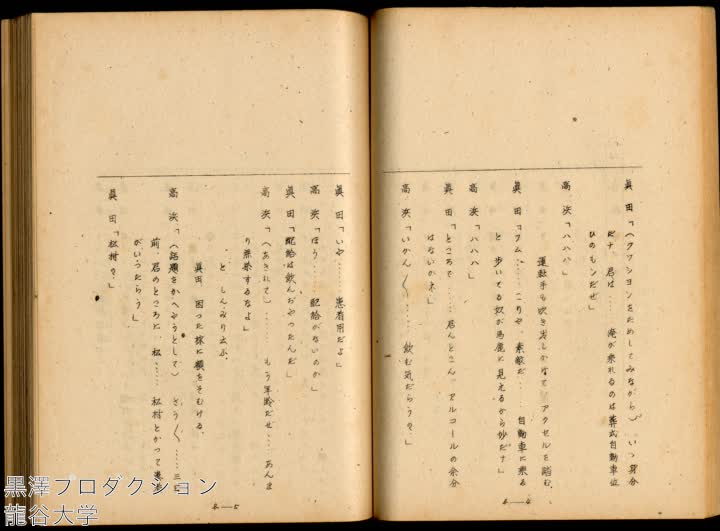 眞田「(クツシヨンをためしてみながら) いゝ身分
だナ、君は……俺が乘れるのは葬式自動車位
ひのもンだぜ」
高浜「ハハハ」
運転手も吹き出しかなて アクセルを踏む、
眞田「フム……こりや、素敵だ……自動車に乘る
と 歩いてる奴が馬鹿に見えるから妙だナ」
高浜「ハハハ」
眞田「ところで……君んとこに アルコールの余分
はないかネ」
高浜「いかん〱……飲む気だらう?」
4—4
眞田「いや…… 患者用だよ」
高浜「ほう…… 配給がないのか」
眞田「配給は飲んぢやつたんだ」
高浜「(あきれて)… もう年齢だぜ…あんま
り無茶するなよ」
と しんみり云ふ、
眞田、困つた様に顔をそむける、
高浜「(話題をかへやうとして) さう〱……三日
前、君のところに、松… 松村とかつて患者
がいつたらう」
眞田「松村?」
4—5
黒澤プロダクション
龍谷大学